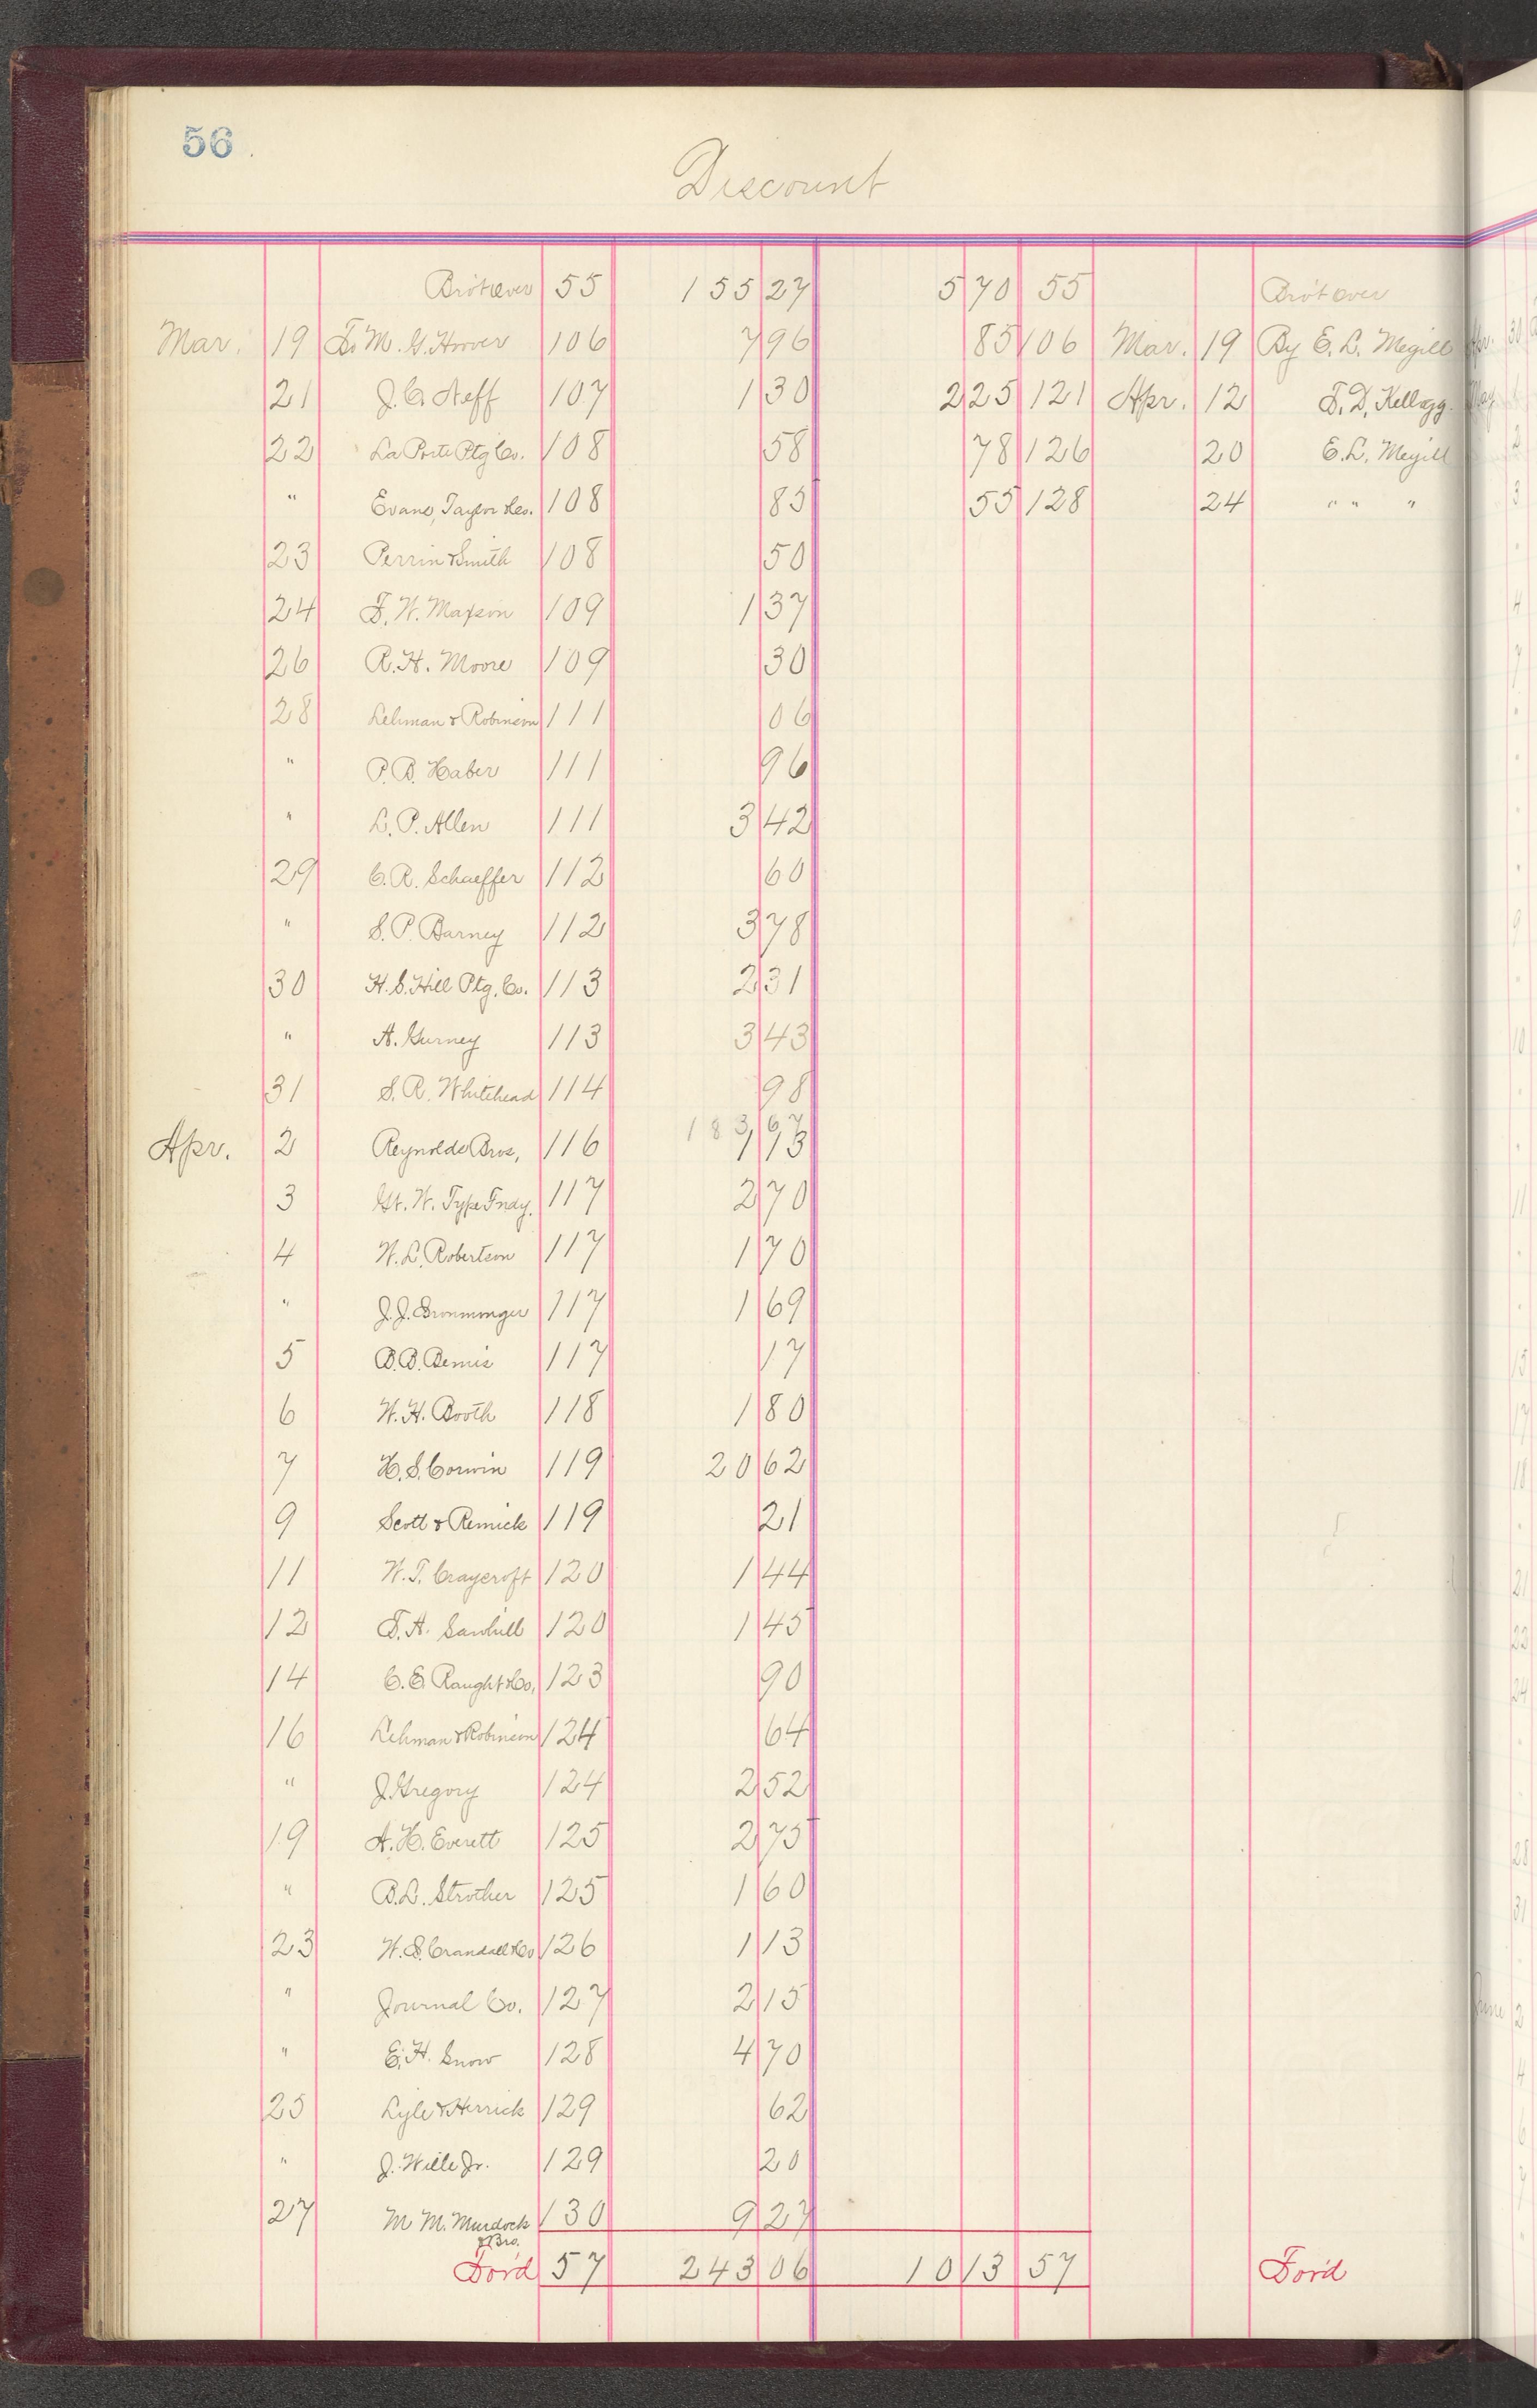 56
Discount
Bro't over 55 155 27 5 70 55 Bro't over
Mar. 19 To M. G. Hoover 106 7 96 85 106 Mar. 19 By E. L. Megill
21 J. C. Neff 107 1 30 2 25 121 Apr. 12 F. D. Kellogg.
22 La Porte Ptg Co. 108 58 78 126 20 E. L. Megill
" Evans, Taylor & Co. 108 85 55 128 24 " " "
23 Perrin & Smith 108 50
24 F. W. Maxson 109 1 37
26 R. H. Moore 109 30
28 Lehman & Robinson 111 06
" P. B. Haber 111 96
" L. P. Allen 111 3 42
29 C. R. Schaeffer 112 60
" S. P. Barney 112 3 78
30 H. S. Hill Ptg. Co. 113 2 31
" A. Gurney 113 3 43
31 S. R. Whitehead 114 98
183 67
Apr. 2 Reynolds Bros, 116 1 13
3 Gt. W. Type Fndy. 117 2 70
4 W. L. Robertson 117 1 70
" J. J. 117 1 69
5 B. B. Bemis 117 17
6 W. H. Booth 118 1 80
7 H. S. Corwin 119 20 62
9 Scott & Remick 119 21
11 W. T. Craycroft 120 1 44
12 F. A. Sawhill 120 1 45
14 C. E. Raught & Co, 123 90
16 Lehman & Robinson 124 64
" J. Gregory 124 2 52
19 A. H. Everett 125 2 75
" B. L. Strother 125 1 60
23 W. S. Crandall & Co 126 1 13
" Journal Co. 127 2 15
" E. H. Snow 128 4 70
25 Lyle & Herrick 129 62
" J. Wille Jr. 129 20
27 M M. Murdock 130 9 27
& Bro.
For'd 57 243 06 10 13 57 For'd